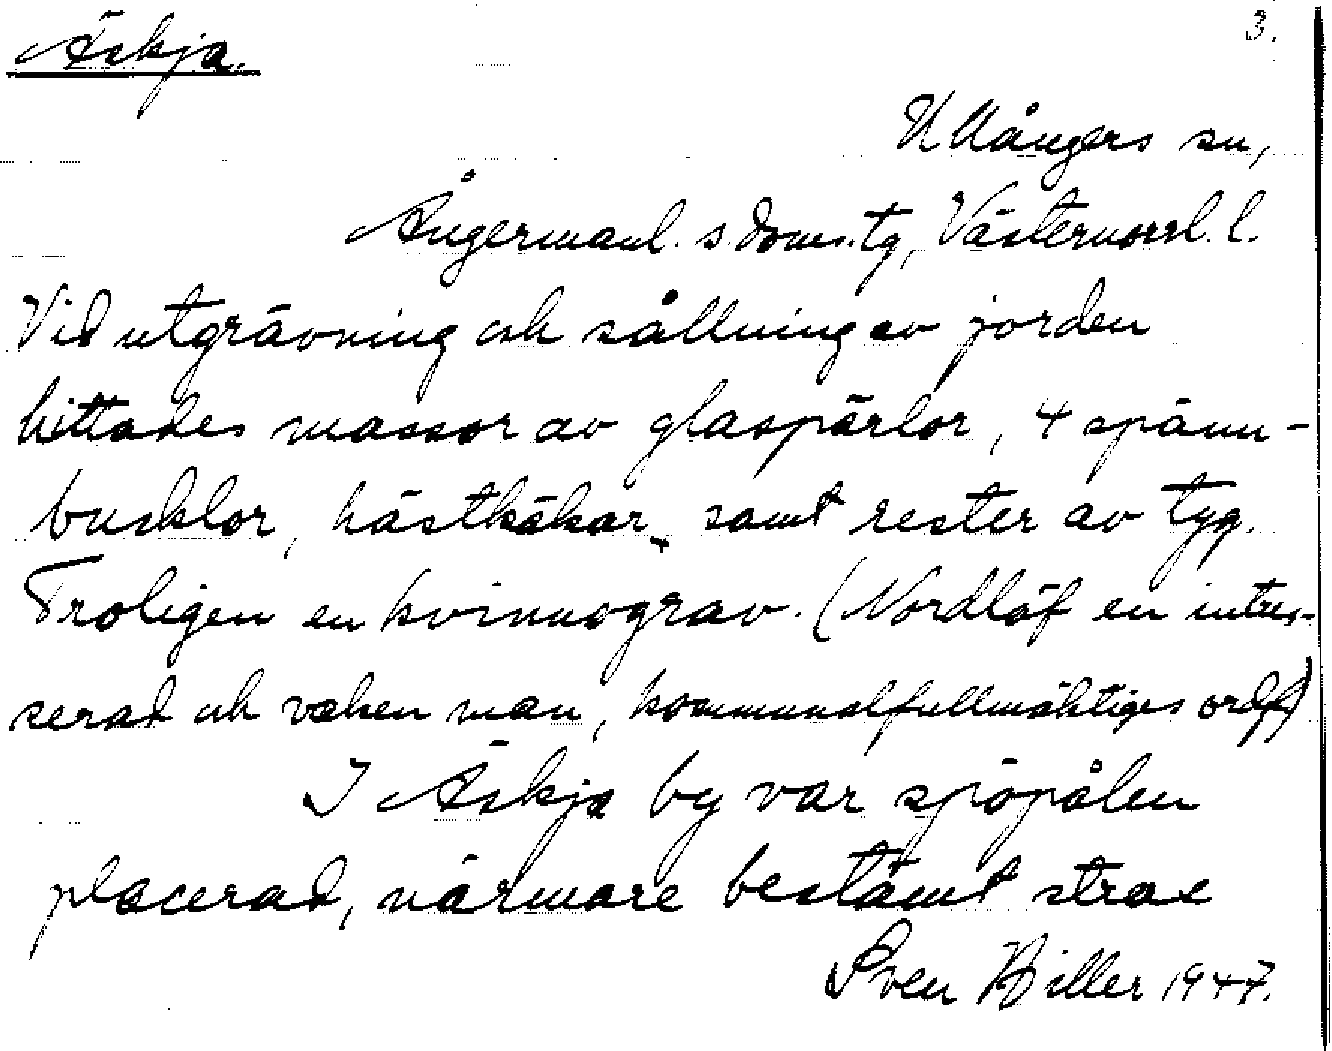 Äskja.
3.
Ullångers sn,
Ångermanl. s doms.tg, Västernorrl. l.
Vid utgrävning och sållning av jorden
hittades massor av glaspärlor, 4 spänn-
bucklor, hästkäkar, samt rester av tyg.
Troligen en kvinnograv. (Nordlöf en intres-
serad och vaken man, kommunalfullmäktiges ordf)
I Äskja by var sjöpålen
placerad, närmare bestämt strax
Sven Hiller 1947.